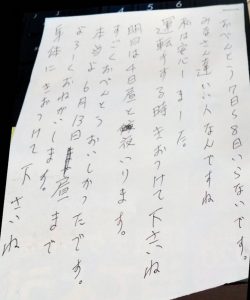 おべんとう7日8日いらないです。
みなさん達いい人なんですね
私は安心しました。
運転する時きおつけて下さいね
明日は4日昼と夜いります。
すごくおべんとうおいしかったです。
本当よ6月13日昼まで
よろしくおねがいします。
身体にきおつけて下さいね